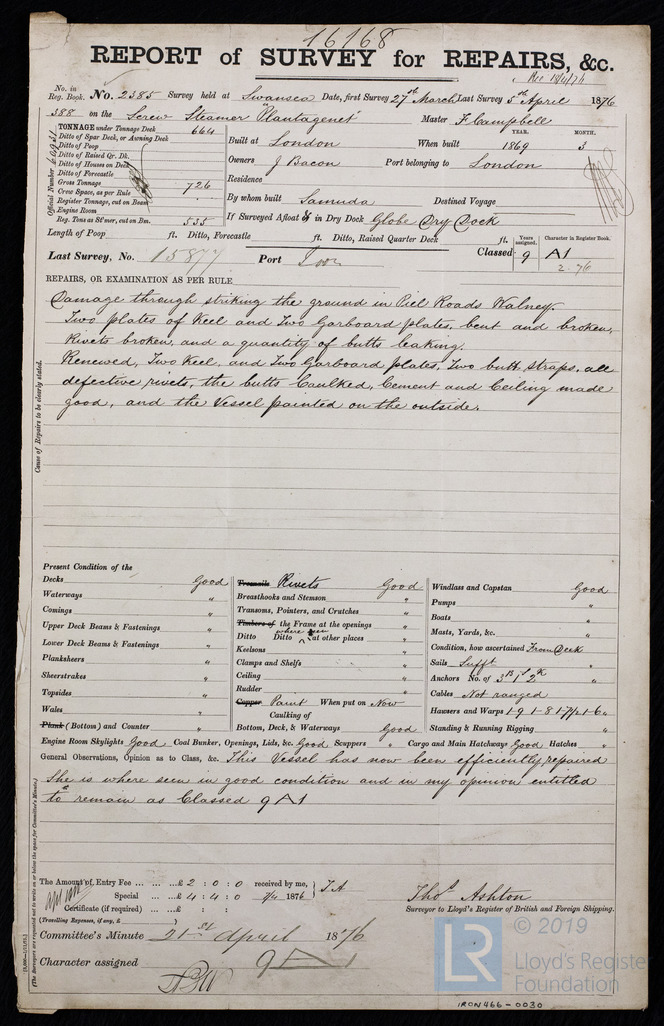 16168
REPORT of SURVEY for REPAIRS, &c.
No. in Reg. Book. No. 2385 Survey held at Swansea Date, first Survey 27th March Last Survey 5th April 1876
388 on the Screw Steamer Plantagenet Master F. Campbell
TONNAGE under Tonnage Deck 664
Ditto of Spar Deck, or Awning Deck
Ditto of Poop
Ditto of Raised Qr. Dk.
Ditto of Houses on Deck
Ditto of Forecastle
Gross Tonnage 726
Crew Space, as per Rule
Register Tonnage, cut on Beam
Engine Room
Reg. Tons as St'mer, cut on Bm. 535
Official Number
Built at London When built YEAR. 1869 MONTH. 3
Owners J Bacon Port belonging to London
Residence
By whom built Samuda Destined Voyage
If Surveyed Afloat or in Dry Dock Globe Dry Dock
Length of Poop ft. Ditto, Forecastle ft. Ditto, Raised Quarter Deck ft.
Last Survey, No. 15877 Port
Classed Years assigned. 9 Character in Register Book. A1
2.76
REPAIRS, OR EXAMINATION AS PER RULE
Damage through striking the ground in Piel Roads Walney.
Two plates of Keel and Two Garboard plates, bent and broken,
Rivets broken, and a quantity of butts leaking.
Renewed, Two Keel, and Two Garboard plates, Two butt straps, all
defective rivets, the butts Caulked, Cement and Ceiling made
good, and the Vessel painted on the outside.
Cause of Repairs to be clearly stated.
Present Condition of the
Decks Good
Waterways "
Comings "
Upper Deck Beams & Fastenings "
Lower Deck Beams & Fastenings "
Planksheers "
Sheerstrakes "
Topsides "
Wales "
Plank (Bottom) and Counter "
Treenails Rivets Good
Breasthooks and Stemson "
Transoms, Pointers, and Crutches "
Timbers of the Frame at the openings "
Ditto Ditto where seen at other places "
Keelsons "
Clamps and Shelfs "
Ceiling "
Rudder "
Copper Paint When put on Now
Caulking of
Bottom, Deck, & Waterways Good
Windlass and Capstan Good
Pumps "
Boats "
Masts, Yards, &c. "
Condition, how ascertained From Deck
Sails Sufft "
Anchors No. of 3 B 1 S 2 K
Cables Not ranged
Hawsers and Warps 1-9 1-8 1-7½ 1-6 "
Standing & Running Rigging "
Engine Room Skylights Good Coal Bunker, Openings, Lids, &c. Good Scuppers " Cargo and Main Hatchways Good Hatches "
General Observations, Opinion as to Class, &c. This Vessel has now been efficiently repaired
She is where seen in good condition and in my opinion entitled
to remain as Classed 9 A1
The Amount of Entry Fee ... £ 2 : 0 : 0 received by me, T.A
Special ... £ 4 : 4 : 0 1876
Certificate (if required) ... £ : :
(Travelling Expenses, if any, £ )
Thos. Ashton
Surveyor to Lloyd's Register of British and Foreign Shipping.
Committee's Minute 21st April 1876
Character assigned 9 A1
© 2019
LR
Lloyd's Register
Foundation
IRON466-0030